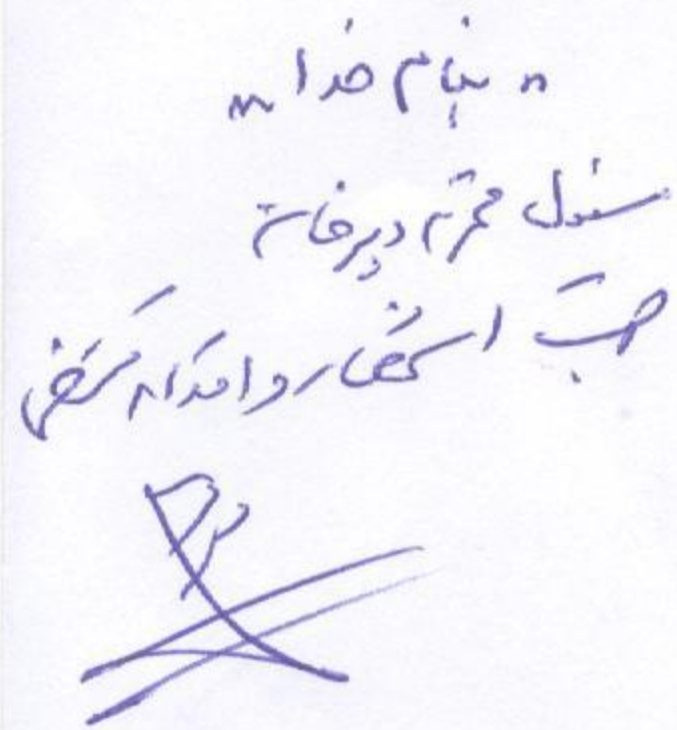 " بنام خدا "
مسئول محترم دبیرخانه
جهت استحضار و اقدام مقتضی